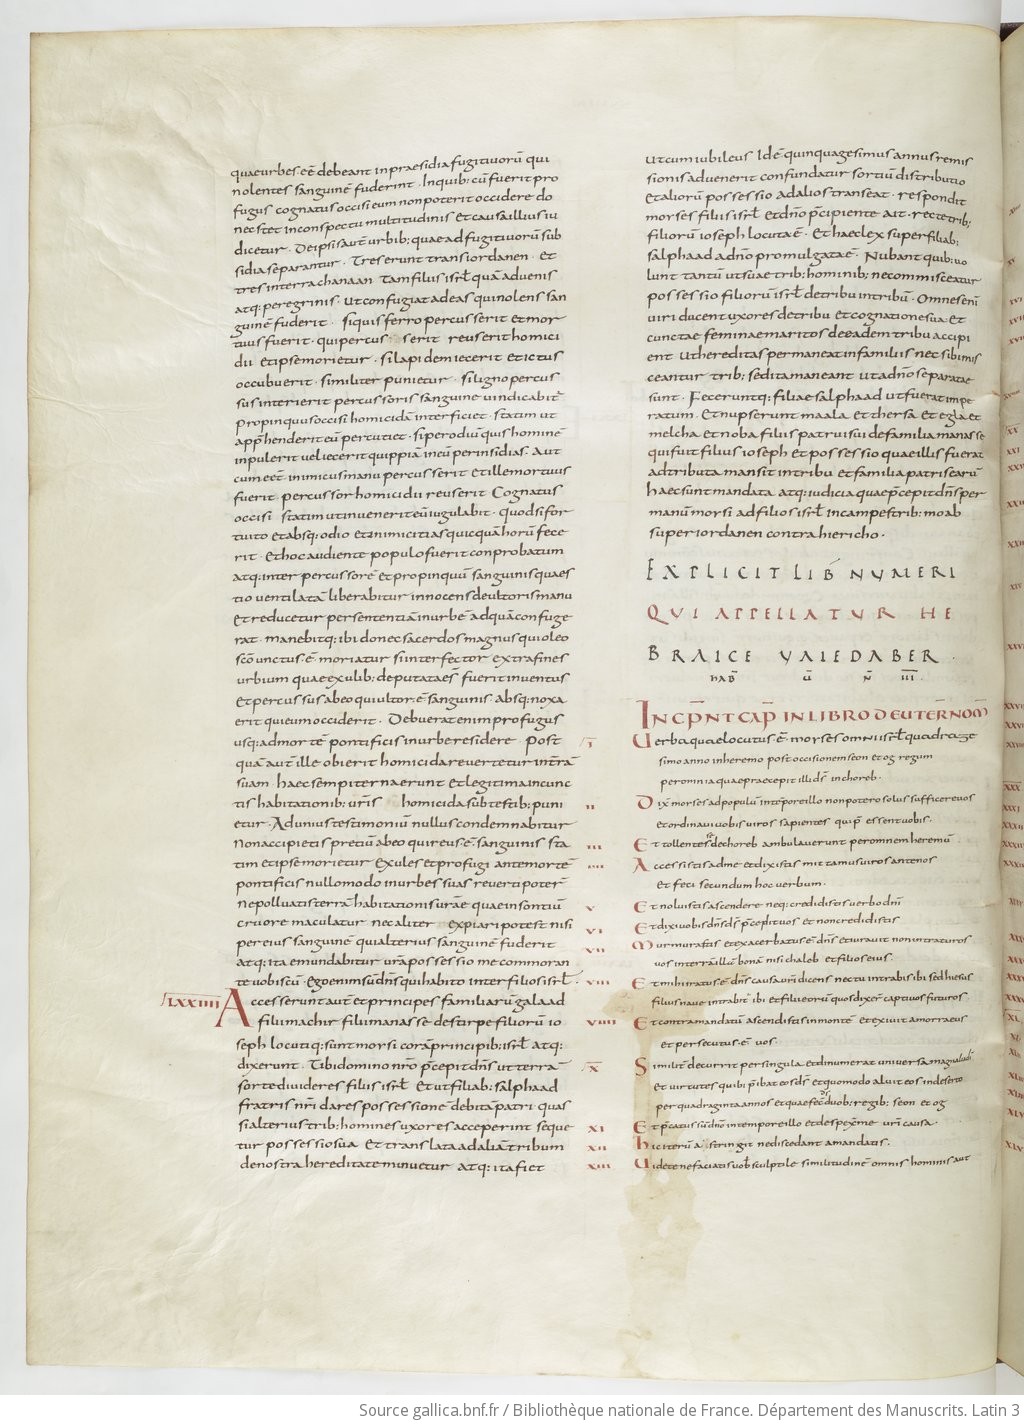 quae urbes eē debeant in praesidia fugitiuorū qui
nolentes sanguinē fuderint · In quib; cū fuerit pro
fugus cognatus occisi eum non poterit occidere do
nec stet in conspectu multitudinis et causa illius iu
dicetur · De ipsis autē urbib; quae ad fugitiuorū sub
sidia separantur · Tres erunt trans iordanen · et
tres in terra chanaan tam filiis isrl̄ quā aduenis
atq; peregrinis · ut confugiat ad eas qui nolens san
guinē fuderit · si quis ferro percusserit et mor
tuus fuerit · qui percusserit reus erit homici
dii et ipse morietur · si lapidem iecerit et ictus
occubuerit · similiter punietur · si ligno percus
sus interierit percussoris sanguine uindicabit̄
propinquus occisi homicidā interficiet · statim ut
apphenderit eū percutiet · si per odiū quis hominē
inpulerit uel iecerit quippiā in eū per insidias · Aut
cum eēt inimicus manu percusserit et ille mortuus
fuerit percussor homicidii reus erit Cognatus
occisi statim ut inuenerit eū iugulabit · quod si for
tuito et absq; odio et inimicitiis quicquā horū fece
rit · et hoc audiente populo fuerit conprobatum
atq; inter percussorē et propinquū sanguinis quaes
tio uentilata liberabitur innocens de ultoris manu
et reducetur per sententiā in urbē ad quā confuge
rat · manebitq; ibi donec sacerdos magnus qui oleo
sc̄o unctus ē moriatur si interfector extra fines
urbium quae exulib; deputatae s̄ fuerit inuentus
et percussus ab eo qui ultor ē sanguinis absq; noxa
erit qui eum occiderit · Debuerat enim profugus
usq; ad mortē pontificis in urbe residere Post
quā autē ille obierit homicida reuertetur in terrā
suam haec sempiterna erunt et legitima in cunc
tis habitationib; uris̄ homicida sub testib; puni
etur · Ad unius testimoniū nullus condemnabitur
Non accipietis pretiū ab eo qui reus ē sanguinis sta
tim et ipse morietur Exules et profugi ante mortē
pontificis nullo modo in urbes suas reuerti poter̄
ne polluatis terrā habitationis urae quae insontiū
cruore maculatur nec aliter expiari potest nisi
per eius sanguinē qui alterius sanguinē fuderit
atq; ita emundabitur ura possessio me commoran
te uobiscū · ego enim sū dn̄s qui habito inter filios isrl̄ ·
LXXIIII Accesserunt autē et principes familiarū galaad
filii machir filii manasse de stirpe filiorū io
seph locutiq; sunt morsi corā principib; isrl̄ atq;
dixerunt · Tibi domino nr̄o p̄cepit dn̄s ut terrā
sorte diuideres filiis isrl̄ et ut filiab; salphaad
fratris nri dares possessionē debitā patri quas
si alterius trib; homines uxores acceperint seque
tur possessio sua et translata ad aliā tribum
de nostra hereditate minuetur atq; ita fiet
ut cum iubileus Id ē quinquagesimus annus remis
sionis aduenerit confundatur sortiū distributio
et aliorū possessio ad alios transeat · respondit
morses filiis isrl̄ et dn̄o p̄cipiente ait · recte trib;
filiorū ioseph locuta ē · et haec lex super filiab;
salphaad a dn̄o promulgata ē · Nubant quib; uo
lunt tantū ut suae trib; hominib; ne commisceatur
possessio filiorū isrl̄ de tribu in tribū · Omnes eni
uiri ducent uxores de tribu et cognatione sua et
cunctae feminae maritos de eadem tribu accipi
ent ut hereditas permaneat in familiis nec sibi mis
ceantur trib; sed ita maneant ut a dn̄o separatae
sunt · Feceruntq; filiae salphaad ut fuerat impe
ratum · et nupserunt maala et thersa et egla et
melcha et noba filiis patrui sui de familia manasse
qui fuit filius ioseph et possessio quae illis fuerat
adtributa mansit in tribu et familia patris earū
haec sunt mandata atq; iudicia quae p̄cepit dn̄s per
manū morsi ad filios isrl̄ in campestrib; moab
super iordanen contra hiericho ·
EXPLICIT LIB NUMERI
QUI APPELLATUR HE
BRAICE UAIEDABER ·
INCP̄NT CAP̄ IN LIBRO DEUTERNOM̄
I Uerba quae locutus ē morses omni isrl̄ quadrage
simo anno in heremo post occisionem seon et og regum
per omnia quae praecepit illi ds̄ in choreb ·
II Dix̄ morses ad populū in tēpore illo non potero solus sufferre uos
et ordinaui uobis uiros sapientes qui p̄essent uobis ·
III Et tollentes se de choreb ambulauerunt per omnem heremū
IIII Accessistis ad me et dixistis mittamus uiros ante nos
et feci secundum hoc uerbum ·
V Et noluistis ascendere neq; credidistis uerbo dn̄i
VI Et dixi uobis dn̄s ds̄ p̄cepit uos et non credidistis
VII Murmurastis et exacerbatus ē dn̄s et iurauit non intraturos
uos in terrā illā bonā nisi chaleb et filios eius ·
VIII Et mihi iratus ē dn̄s causa uri dicens nec tu intrabis ibi sed hiesus
filius naue intrabit̄ ibi et filii eorū quos dixer̄ captiuos futuros ·
VIIII Et contra mandatū ascendistis in montē et exiuit amorraeus
et persecutus ē uos ·
X Similit̄ decurrit per singula et dinumerat uniuersa magnalia di
et uirtutes quib; p̄ibat eos ds̄ et quomodo aluit eos in deserto
per quadraginta annos et quae fec̄ duob; regib; seon et og
XI Et p̄catus sū dn̄o in tempore illo et despex̄ me uri causa ·
XII hic iterū astringit ne discedant a mandatis ·
XIII Uidete ne faciatis uob̄ sculptile similitudinē omnis hominis aut
Source gallica.bnf.fr / Bibliothèque nationale de France. Département des Manuscrits. Latin 3